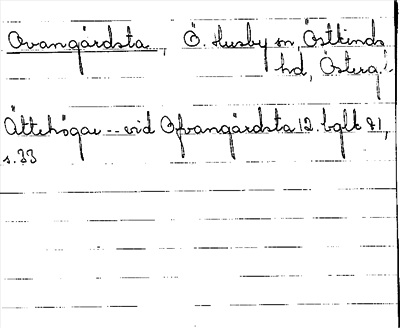 Ovangärdsta, Ö. Husby sn, Östkinds
hd, Österg.l.
Ättehögar -- vid Ofvangärdsta 12. bglb 71,
s. 33